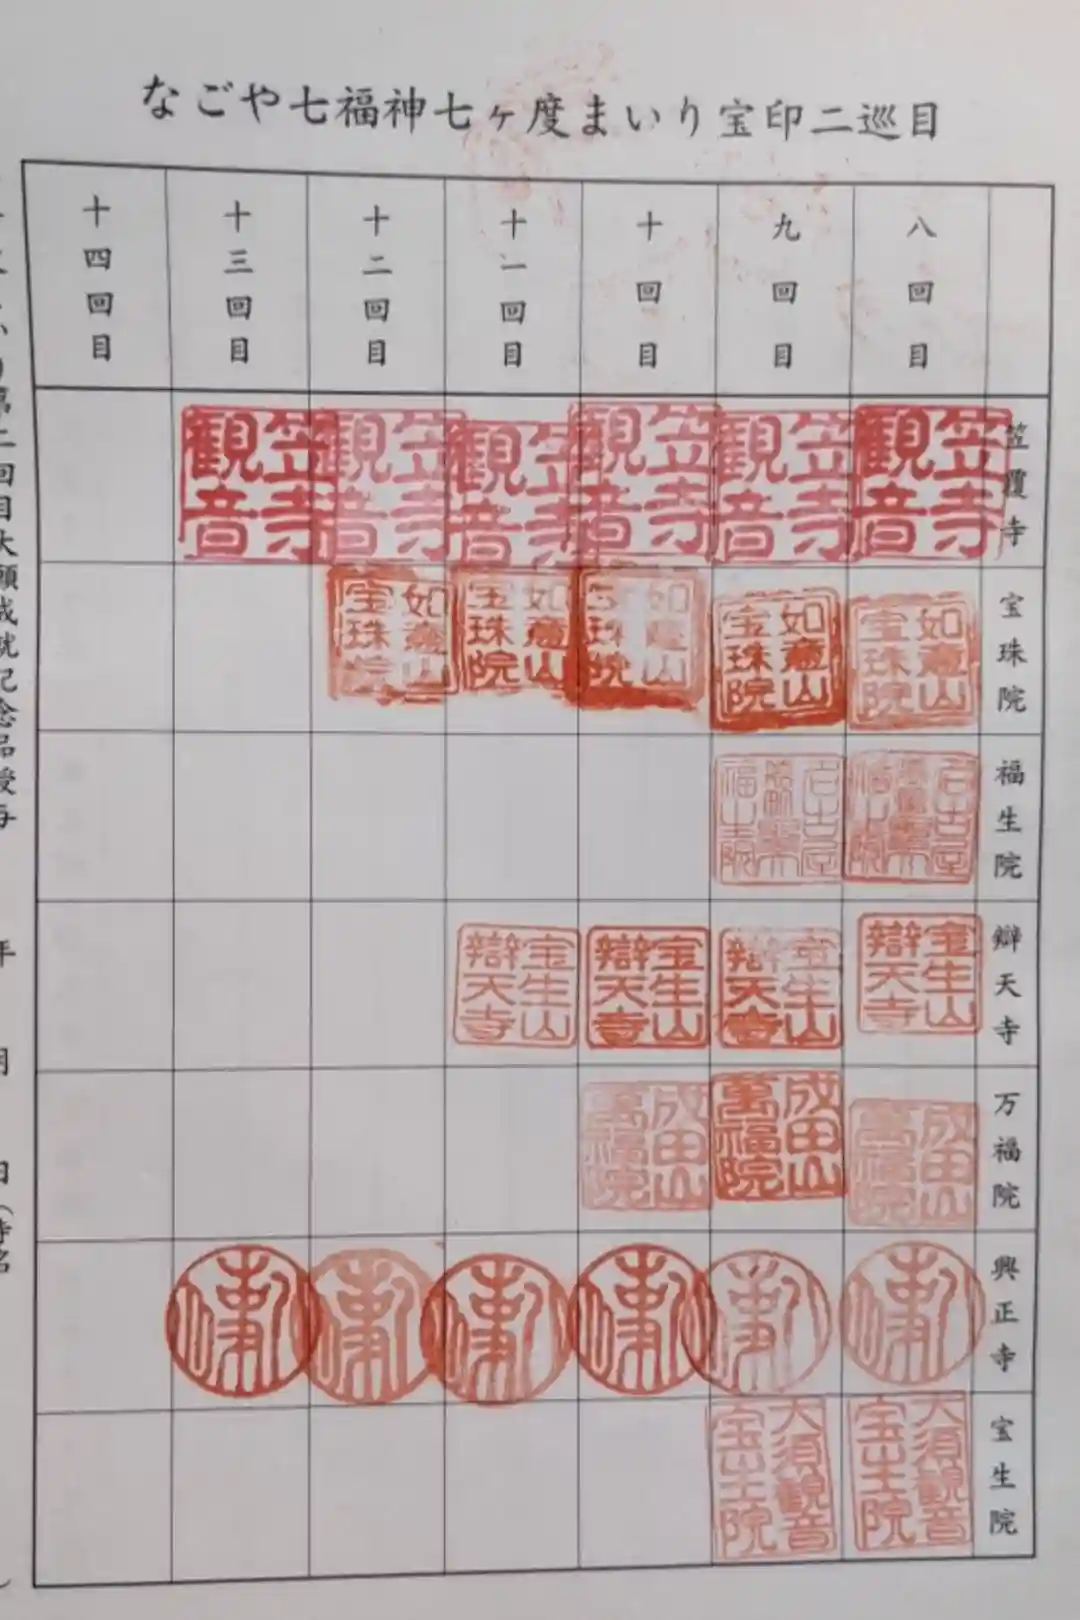 なごや七福神七ヶ度まいり宝印二巡目
八回目
九回目
十回目
十一回目
十二回目
十三回目
十四回目
笠覆寺
笠寺観音
笠寺観音
笠寺観音
笠寺観音
笠寺観音
笠寺観音
宝珠院
如意山宝珠院
如意山宝珠院
如意山宝珠院
如意山宝珠院
如意山宝珠院
福生院
辯天寺
宝生山辯天寺
宝生山辯天寺
宝生山辯天寺
宝生山辯天寺
万福院
成田山萬福院
成田山萬福院
成田山萬福院
興正寺
宝生院
大須観音宝生院
大須観音宝生院
第二回目大願成就記念品授与
年
月
日